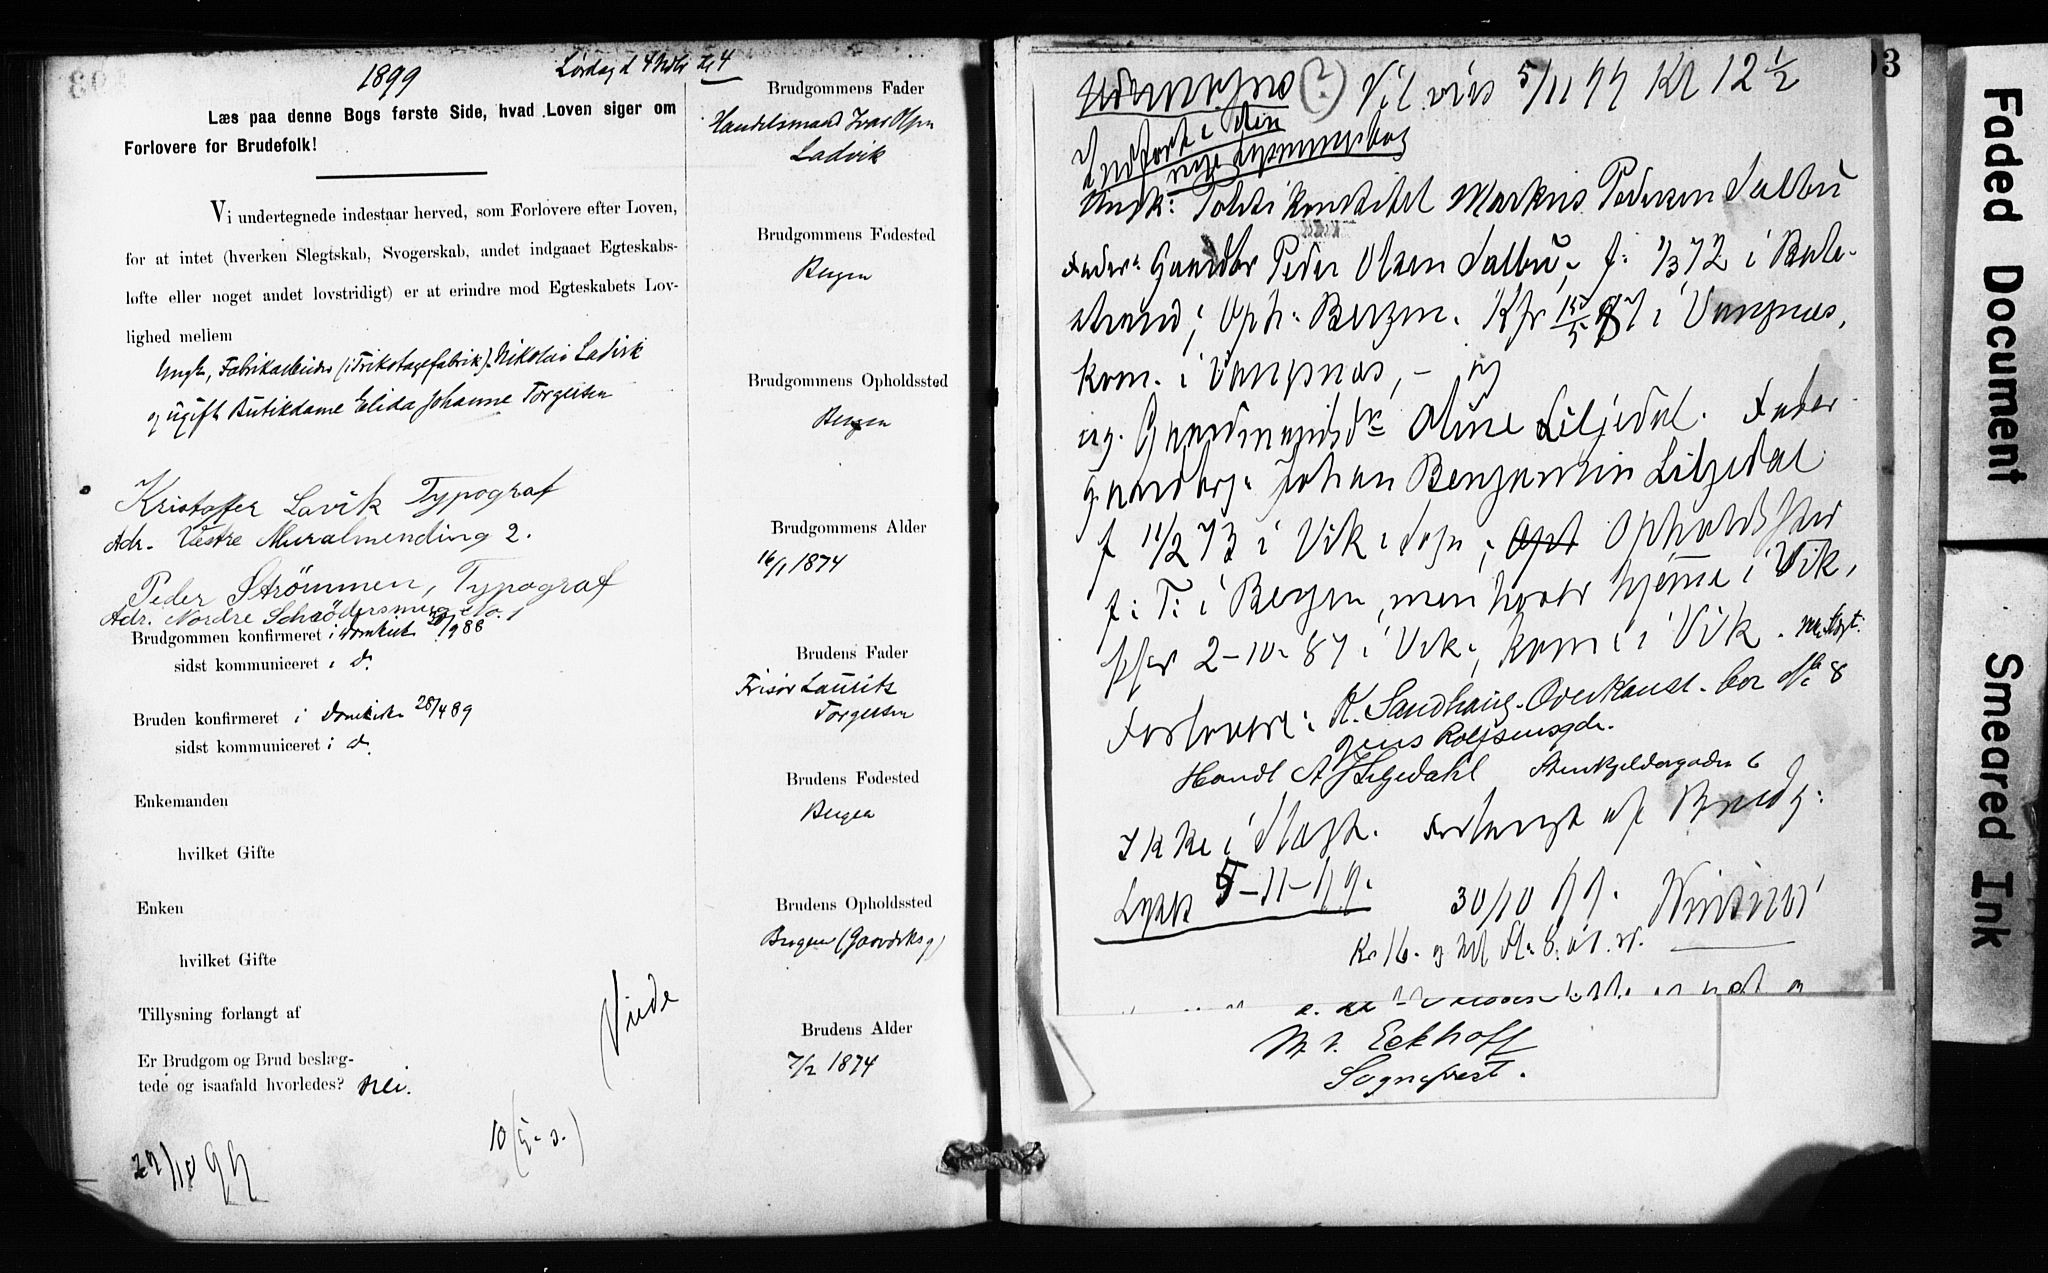 1899
Lørdag d 4 Novbr kl 4
Læs paa denne Bogs første Side, hvad Loven siger om
Forlovere for Brudefolk!
Vi undertegnede indestaar herved, som Forlovere efter Loven,
for at intet (hverken Slegtskab, Svogerskab, andet indgaaet Egteskabs-
løfte eller noget andet lovstridigt) er at erindre mod Egteskabets Lov-
lighed mellem
Ungk, Fabrikarbeider (i Trikotagefabrik) Nikolai Ladvik
og ugift Butikdame Elida Johanne Torgersen
Kristoffer Lavik Typograf
Adr. Vestre Muralmending 2.
Peder Strömmen, Typograf
Adr. Nordre Schrödersmug No. 1
Brudgommen konfirmeret i Domkirk /9 88
sidst kommuniceret i d.
Bruden konfirmeret i Domkirke 28/4 89
sidst kommuniceret i d.
Enkemanden
hvilket Gifte
Enken
hvilket Gifte
Tillysning forlangt af
Er Brudgom og Brud beslæg-
tede og isaafald hvorledes? Nei.
Viede
10
Brudgommens Fader
Handelsmand Ivar Olsen
Ladvik
Brudgommens Fødested
Bergen
Brudgommens Opholdssted
Bergen
Brudgommens Alder
16/1 1874
Brudens Fader
Frisør Lauritz
Torgersen
Brudens Fødested
Bergen
Brudens Opholdssted
Bergen
Brudens Alder
7/2 1874
03
(?) Vil vies 5/11 99 Kl 12 1/2
Indført i den
nye Lysningsbog
Ungk: Politikonstabel Markus Pedersen Salbu
Fader: Gaardbr Peder Olsen Salbu, f: 1/3 72 i Bale-
strand; Oph: Bergen. Kfr 15/5 87 i Vangnæs,
Kom. i Vangnæs, - og
ug. Gaardmandsdr Oline Liljedal. Fader
Gaardbr: Johan Benjamin Liljedal
f 11/2 73 i Vik i Sogn; Opt Opholdssted
f: T: i Bergen, men har hjemme i Vik,
kfr 2-10-87 i Vik; kom: i Vik.
Forlovere: K. Sandhaug. Overkonst. bor No 8
Jens Rolfsensgde.
Handl A J Liljedahl Stenkjeldergaden 6
Ikke i Slægt. Forlangt af Brudg:
Lyst 5-11-99.
30/10 99.
Kr 16.
Eckhoff
Sognepræst.
Faded Document
Smeared Ink